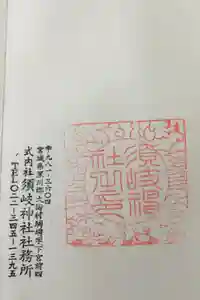 〒九八一-三六〇四
宮城県黒川郡大衡村駒場字下宮前四
式内社 須岐神社社務所
TEL〇二二-三四五-一三九五
須岐神
社之印